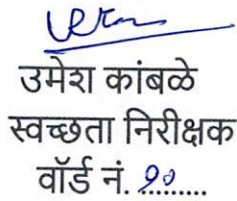 उमेश कांबळे
स्वच्छता निरीक्षक
वॉर्ड नं. १०.........